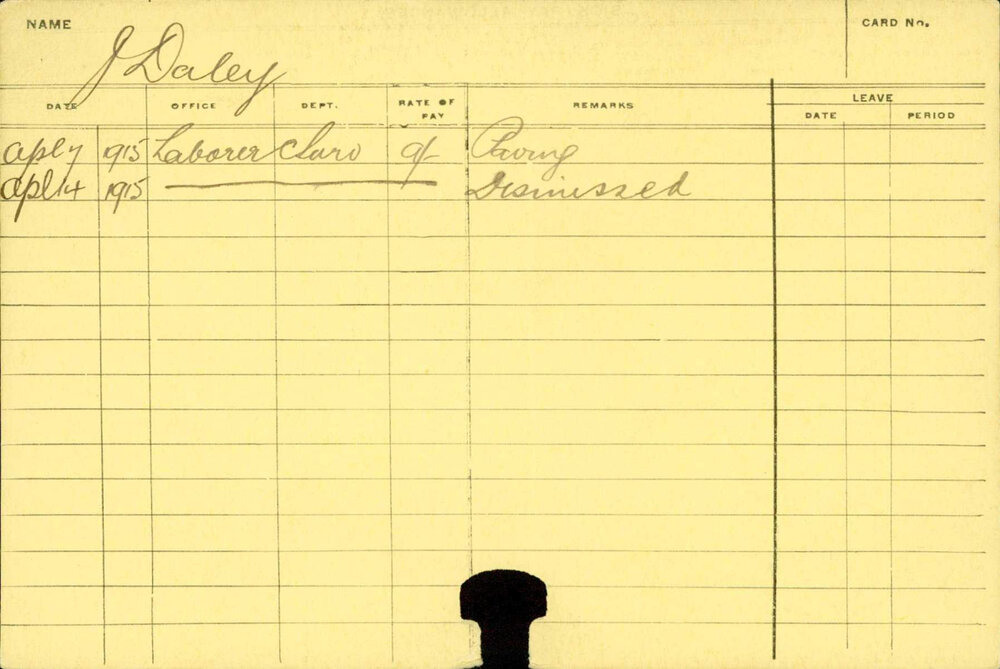 NAME
CARD No.
J Daley
DATE OFFICE DEPT. RATE OF PAY REMARKS LEAVE
DATE PERIOD
Apl 7 1915 Laborer 9/- Paving
Apl 14 1915 Dismissed